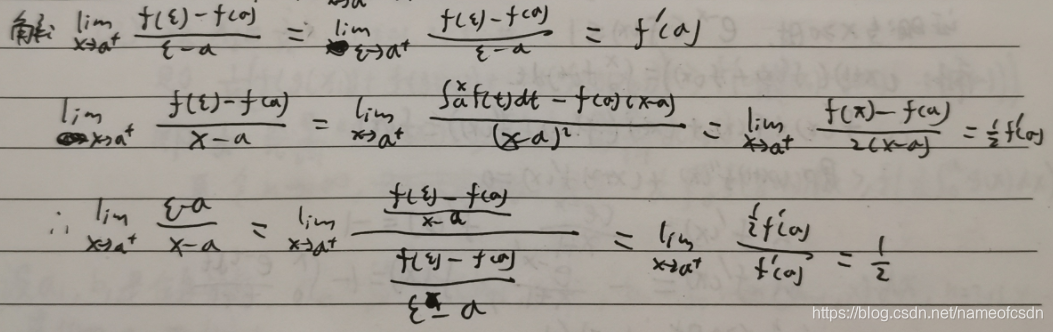 解: lim_{x→a⁺} (f(ξ)-f(a))/(ξ-a) = lim_{ξ→a⁺} (f(ξ)-f(a))/(ξ-a) = f'(a)
lim_{x→a⁺} (f(ξ)-f(a))/(x-a) = lim_{x→a⁺} (∫_a^x f(t)dt - f(a)(x-a))/(x-a)² = lim_{x→a⁺} (f(x)-f(a))/(2(x-a)) = ½f'(a)
∴ lim_{x→a⁺} (ξ-a)/(x-a) = lim_{x→a⁺} ((f(ξ)-f(a))/(x-a))/((f(ξ)-f(a))/(ξ-a)) = lim_{x→a⁺} (½f'(a))/(f'(a)) = 1/2
https://blog.csdn.net/nameofcsdn